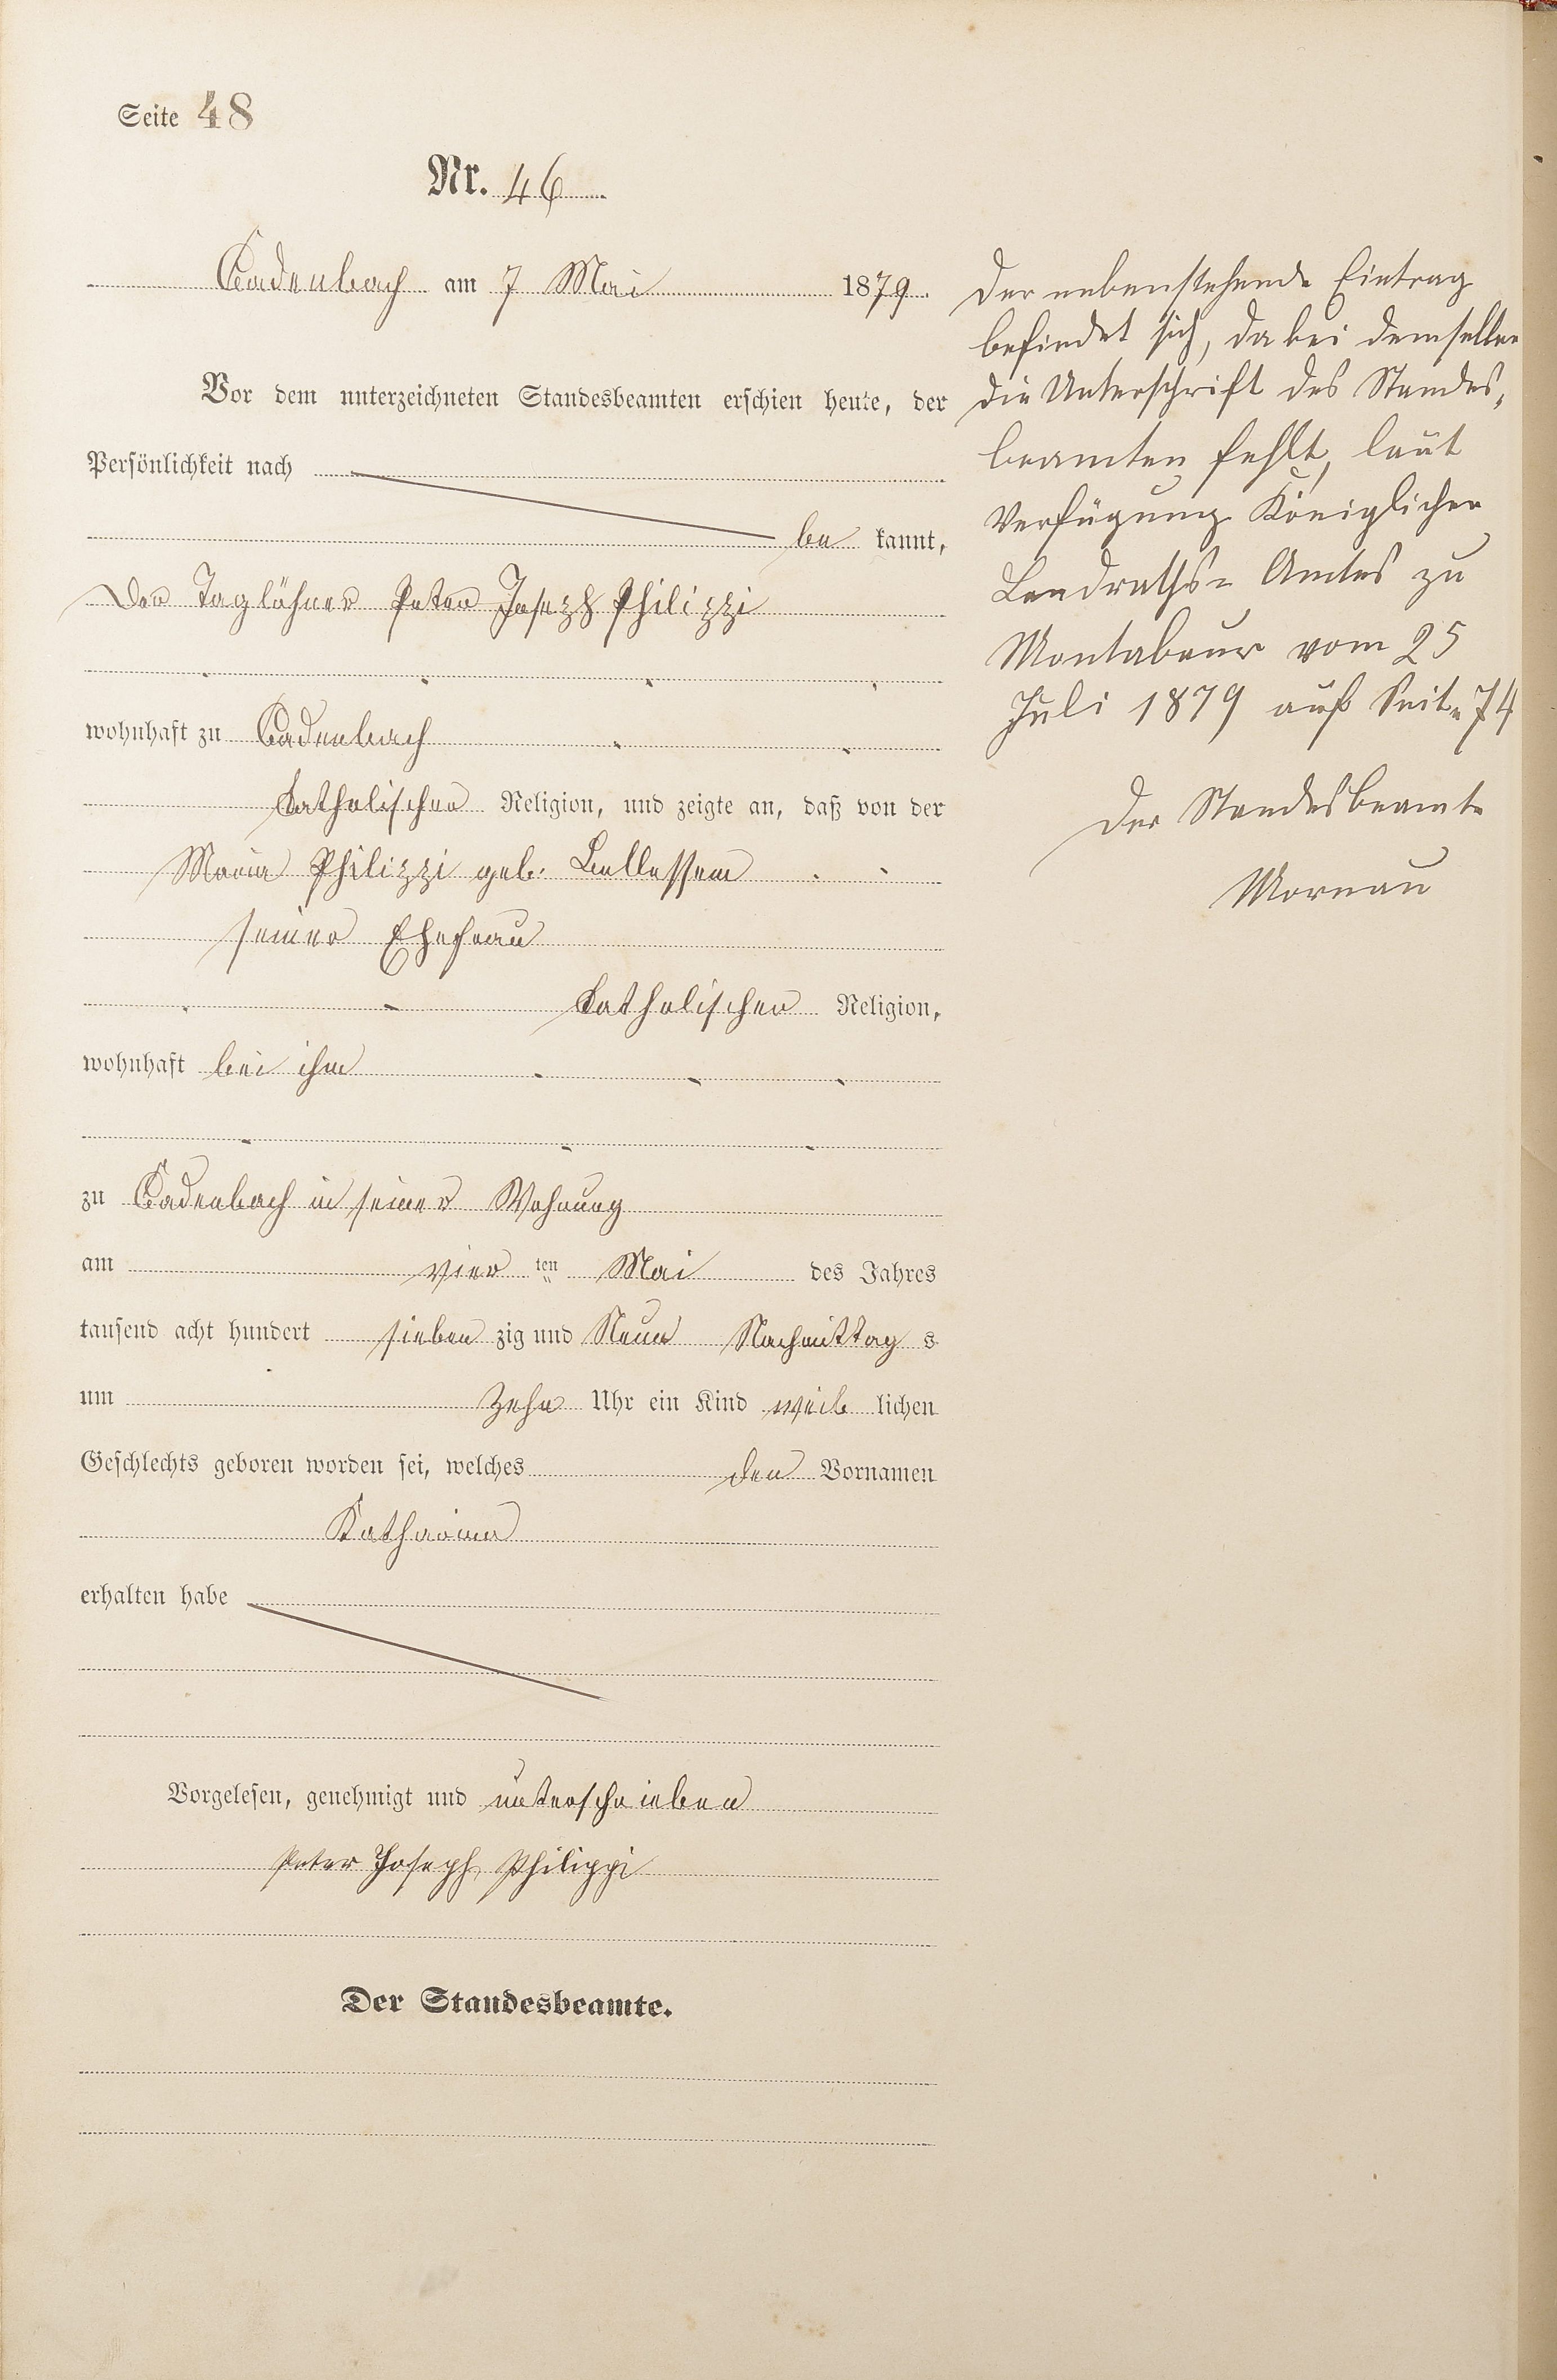 Seite 48
Nr. 46
Cadenbach am 7 Mai 1879.
Vor dem unterzeichneten Standesbeamten erschien heute, der
Persönlichkeit nach
be kannt,
Der Taglöhner Peter Joseph Philippi
wohnhaft zu Cadenbach
katholischer Religion, und zeigte an, daß von der
Maria Philippi geb. Bellessem
seiner Ehefrau
katholischer Religion,
wohnhaft bei ihm
zu Cadenbach in seiner Wohnung
am vier ten Mai des Jahres
tausend acht hundert sieben zig und Neun Nachmittag s
um Zehn Uhr ein Kind weib lichen
Geschlechts geboren worden sei, welches den Vornamen
Katharina
erhalten habe
Vorgelesen, genehmigt und unterschrieben
Peter Joseph Philippi
Der Standesbeamte.
Der nebenstehende Eintrag
befindet sich, da bei demselben
die Unterschrift des Standes,
beamten fehlt, laut
Verfügung Königlichen
Landraths= Amtes zu
Montabaur vom 25
Juli 1879 auf Seite 74
Der Standesbeamte
Mornau